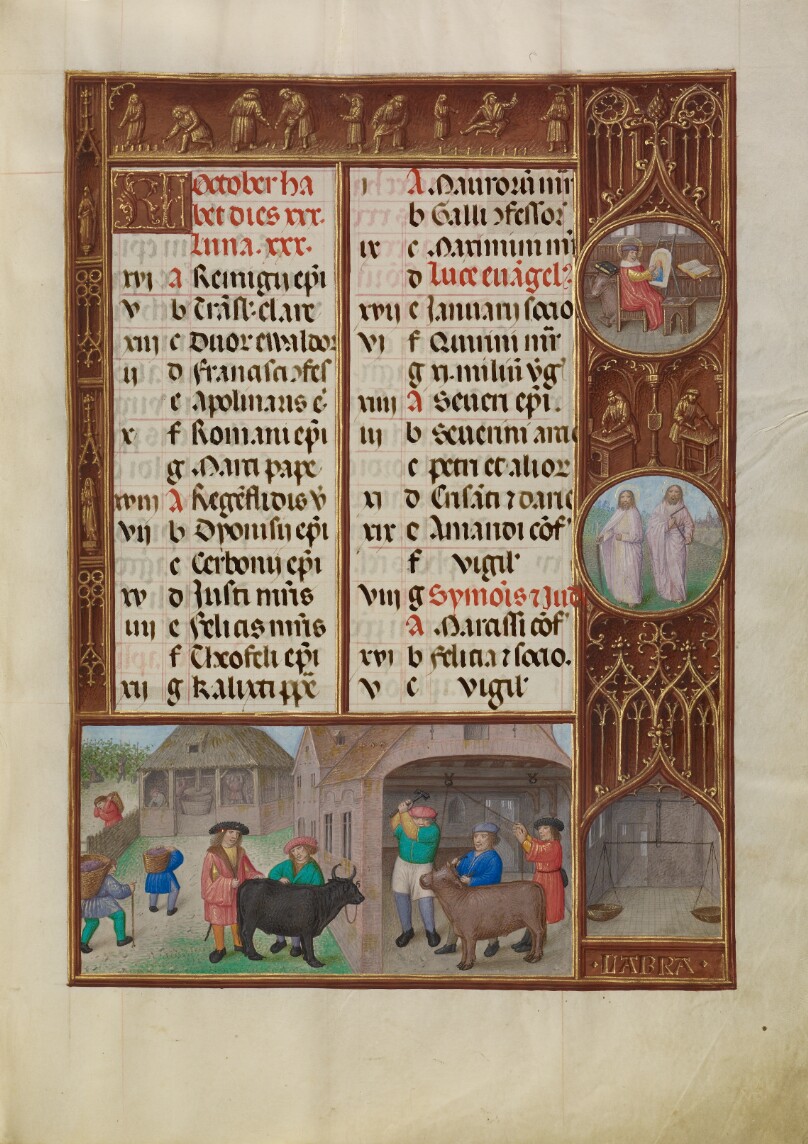 KL October ha
bet dies xxx.
Luna. xxx.
xvi A Remigii epi
v b Trasl. clare
xiii c Duor ewaldor
ii d Francisci ɔfes
e Apolinaris e
x f Romani epi
g Marci pape
xviii A Regeflidis v
vii b Dyonisii epi
c Cerbonii epi
xv d Justi mris
iiii e Felicis mris
f Theofeli epi
xii g Kalixti ppe
i A Maurorū mr
b Galli ɔfessor
ix c Maximini m
d Luce euāgel
xvii e Januarii socio
vi f Quirini mr
g xi. miliū vg
xiiii A Seueri epi.
iii b Seuerini
c Petri et alior
xi d Crisāti ⁊ daric
xix e Amandi cōf
f vigil
viii g Symois ⁊ Jud
A Marcissi cōf
xvi b Felicia ⁊ socio.
v c vigil
LIABRA